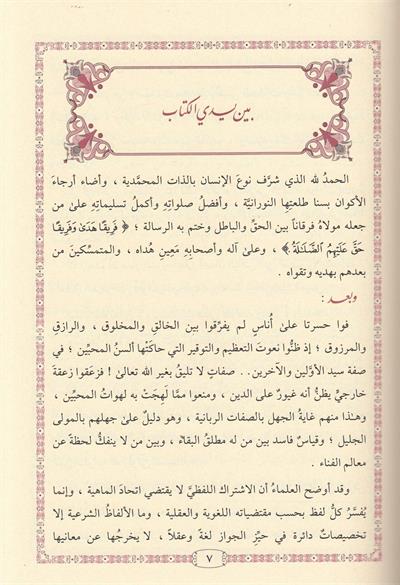 بين يدي الكتاب
الحمدُ لله الذي شرَّف نوعَ الإنسان بالذات المحمدية ، وأضاء أرجاءَ
الأكوان بسنا طلعتِها النورانيَّة ، وأفضلُ صلواتِهِ وأكملُ تسليماتِهِ على من
جعله مولاهُ فرقاناً بين الحقِّ والباطل وختم به الرسالة ؛ ﴿ فَرِيقًا هَدَىٰ وَفَرِيقًا
حَقَّ عَلَيْهِمُ ٱلضَّلَٰلَةُ ﴾ ، وعلى آله وأصحابِهِ مَعِينِ هُداه ، والمتمسِّكينَ من
بعدهم بهديه وتقواه .
وبعد :
فوا حسرتا على أُناسٍ لم يفرِّقوا بين الخالقِ والمخلوق ، والرازقِ
والمرزوق ؛ إذ ظنُّوا نعوتَ التعظيم والتوقير التي حاكَتْها ألسنُ المحبِّين ؛ في
صفة سيد الأوَّلين والآخرين.. صفاتٍ لا تليقُ بغير الله تعالى ! فزعَقوا زعقةَ
خارجيٍّ يظنُّ أنه غيورٌ على الدين ، ومنعوا ممَّا لَهِجَتْ به لهواتُ المحبِّين ،
وهذا منهم غايةُ الجهل بالصفات الربانية ، وهو دليلٌ على جهلهم بالمولى
الجليل ؛ وقياسٌ فاسد بين من له مطلقُ البقاء ، وبين من لا ينفكُّ لحظةً عن
معالم الفناء .
وقد أوضح العلماءُ أن الاشتراك اللفظيَّ لا يقتضي اتحادَ الماهية ، وإنما
يُفسَّرُ كلُّ لفظ بحسب مقتضياته اللغوية والعقلية ، وما الألفاظُ الشرعية إلا
تخصيصاتٌ دائرة في حيِّز الجواز لغةً وعقلاً ، لا يخرجُها عن معانيها
٧